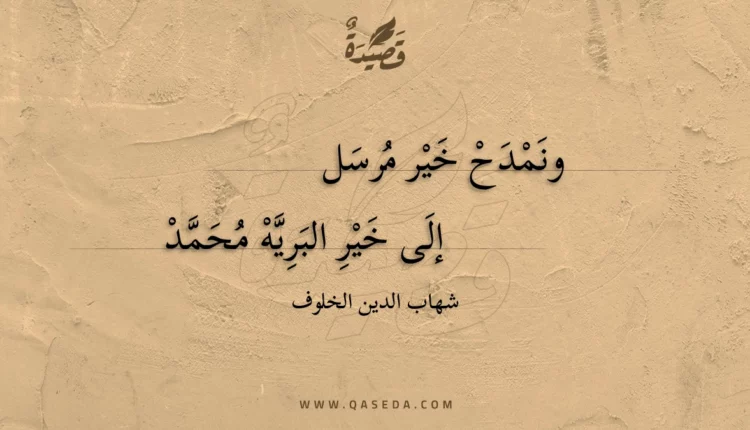 قَصِيدَةٌ
ونَمْدَحْ خَيْر مُرسَل
إلَى خَيْرِ البَرِيَّهْ مُحَمَّدْ
شهاب الدين الخلوف
WWW.QASEDA.COM